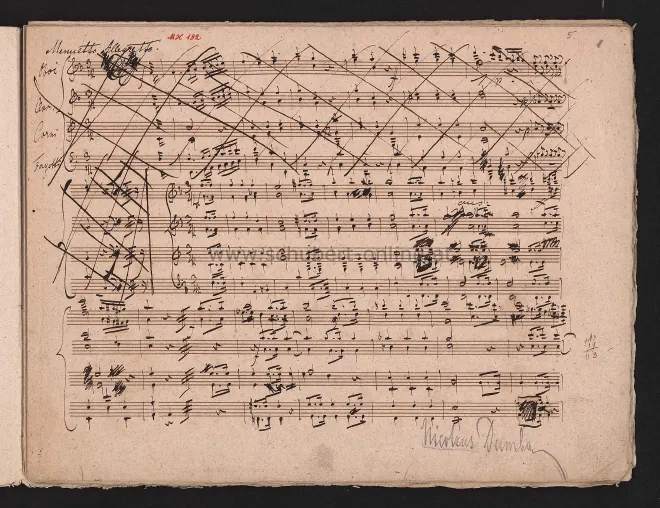 Menuetto. Allegretto.
MH 192
5
Oboi
Clar:
Corni
Fagotti
www.schubert-online.at
Nicolaus Dumba